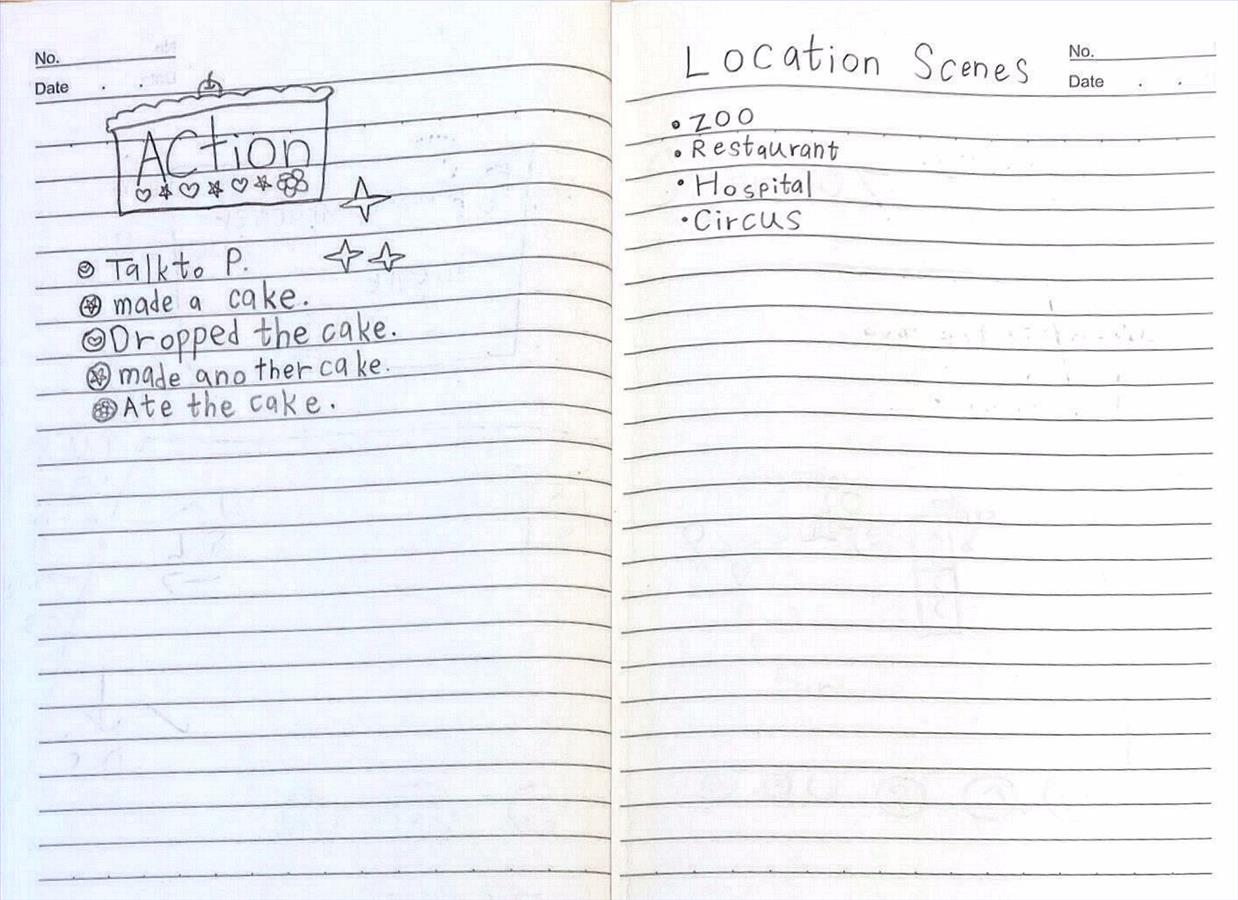 No.
Date . .
Action
Talk to P.
made a cake.
Dropped the cake.
made another cake.
Ate the cake.
Location Scenes
No.
Date . .
• ZOO
• Restaurant
• Hospital
• Circus